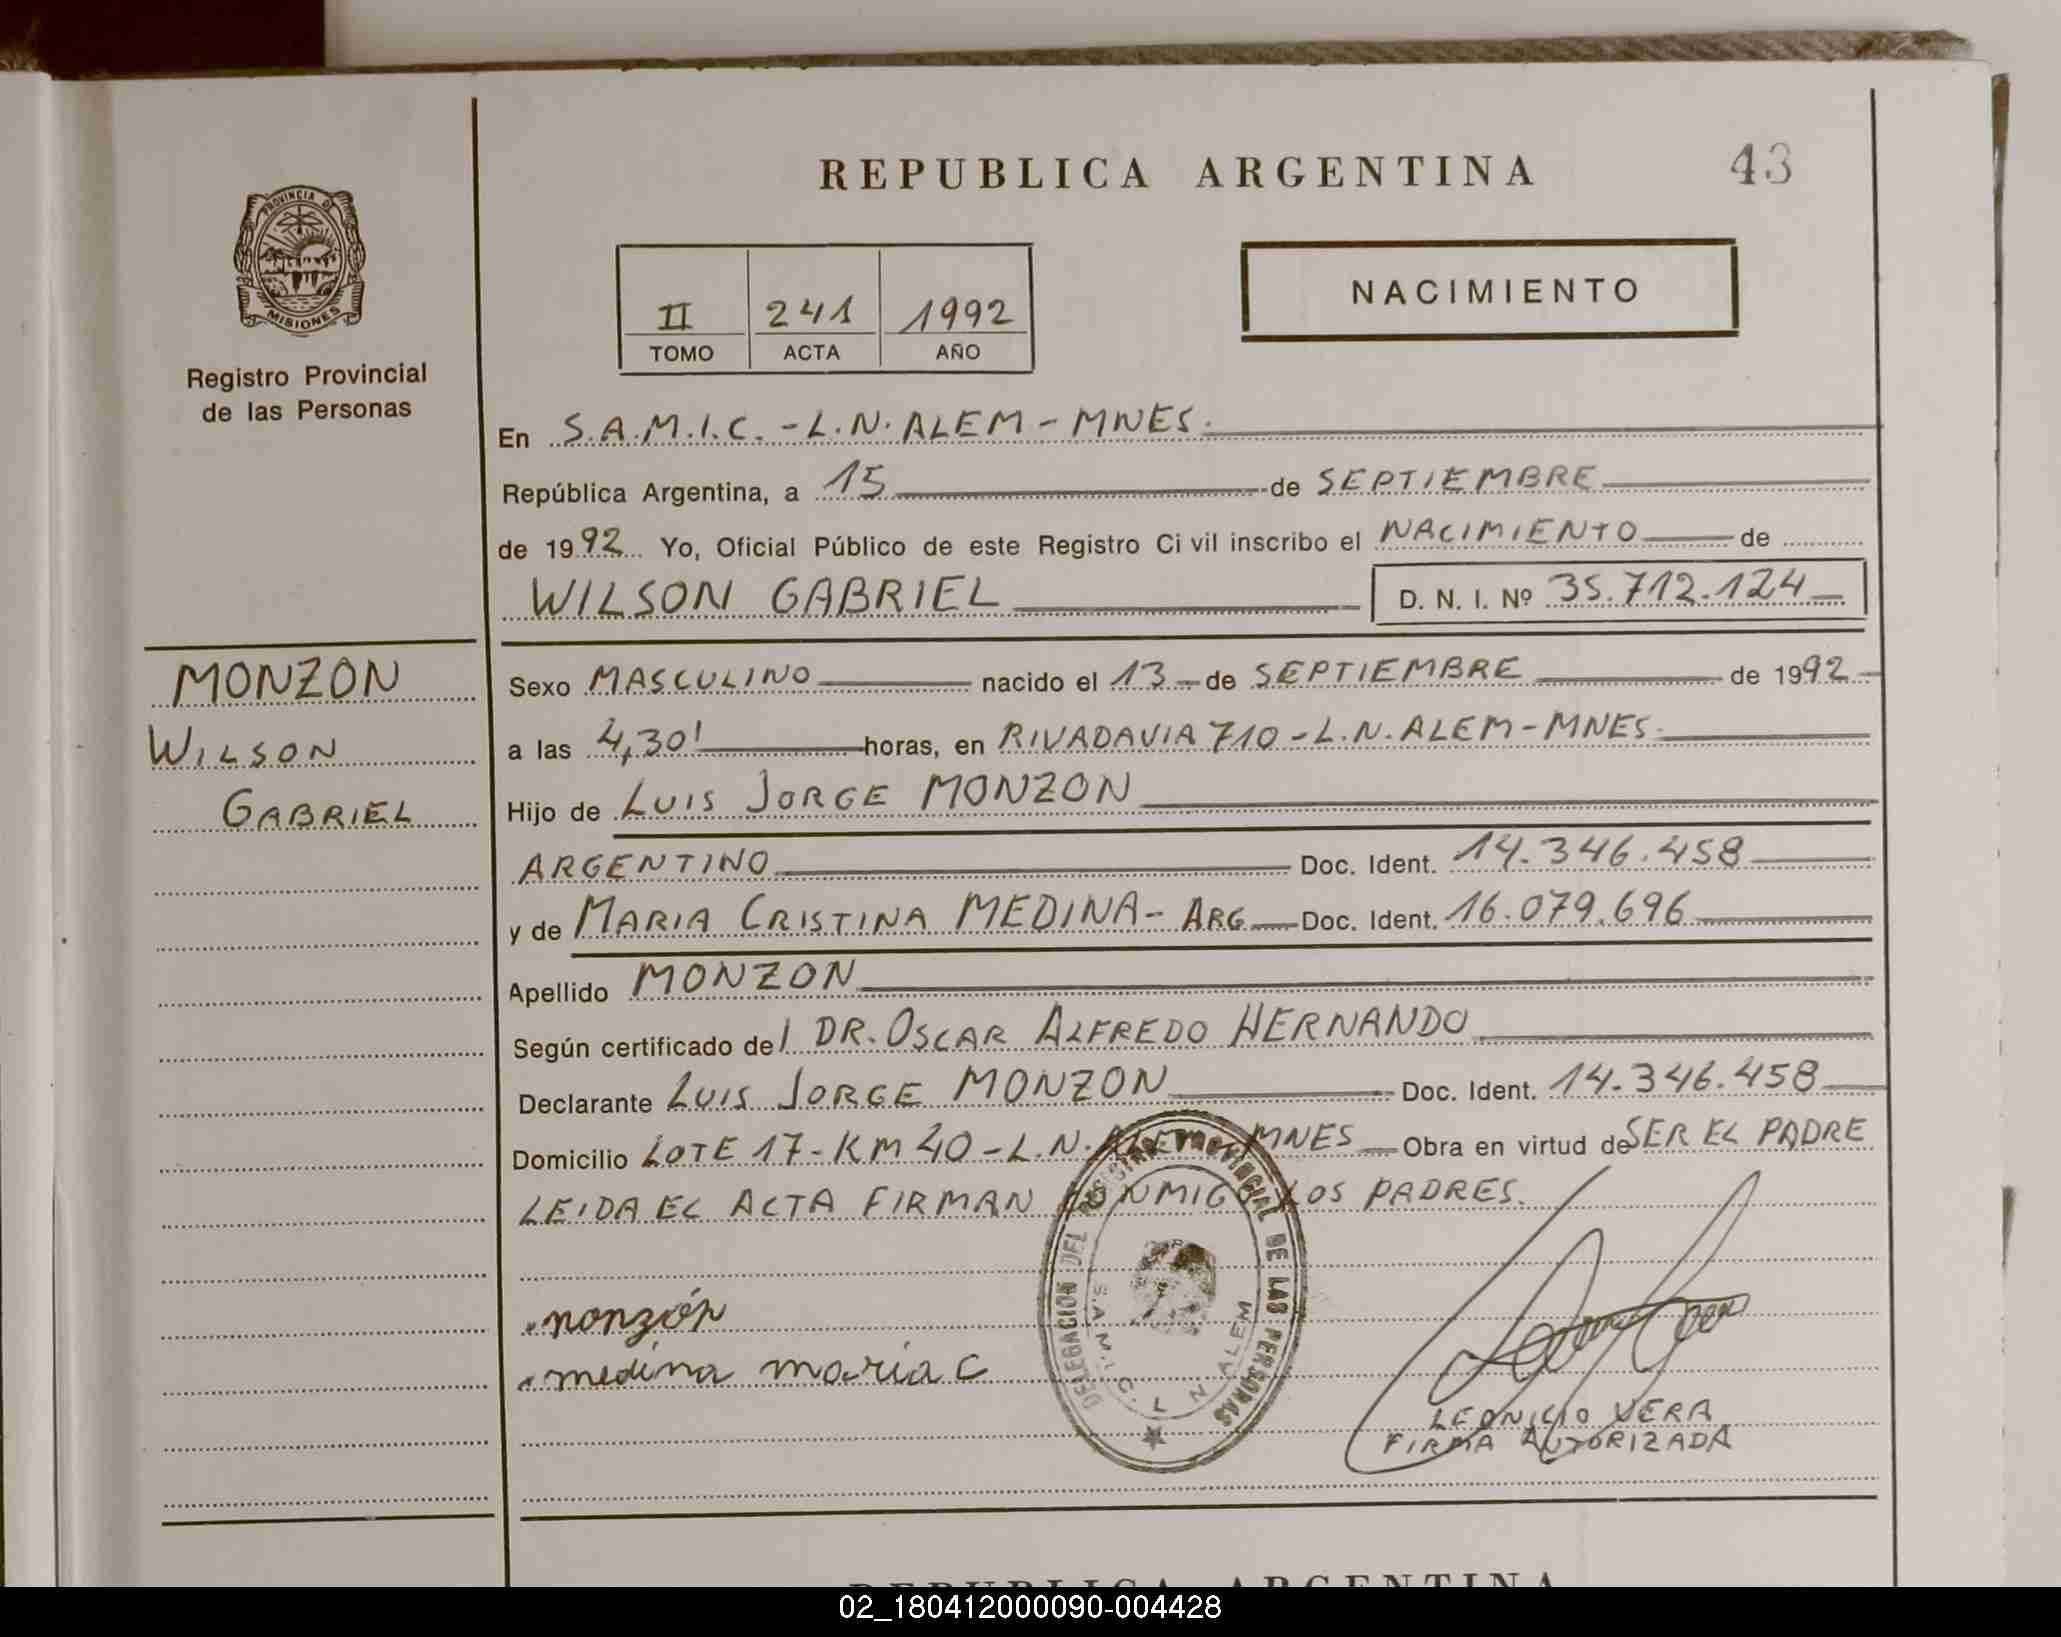 REPUBLICA ARGENTINA
43
PROVINCIA DE
MISIONES
Registro Provincial
de las Personas
II 241 1992
TOMO ACTA AÑO
NACIMIENTO
En S.A.M.I.C. - L.N. ALEM - MNES.
República Argentina, a 15 de SEPTIEMBRE
de 1992 Yo, Oficial Público de este Registro Civil inscribo el NACIMIENTO de
WILSON GABRIEL D. N. I. Nº 35.712.124
MONZON
WILSON
GABRIEL
Sexo MASCULINO nacido el 13 de SEPTIEMBRE de 1992
a las 4,30' horas, en RIVADAVIA 710 - L.N. ALEM - MNES.
Hijo de LUIS JORGE MONZON
ARGENTINO Doc. Ident. 14.346.458
y de MARIA CRISTINA MEDINA - ARG Doc. Ident. 16.079.696
Apellido MONZON
Según certificado del DR. OSCAR ALFREDO HERNANDO
Declarante LUIS JORGE MONZON Doc. Ident. 14.346.458
Domicilio LOTE 17 - KM 40 - L.N. ALEM - MNES Obra en virtud de SER EL PADRE
LEIDA EL ACTA FIRMAN CONMIGO LOS PADRES.
monzón
medina maria c
DELEGACION DEL REGISTRO PROVINCIAL DE LAS PERSONAS
S.A.M.I.C. L N ALEM
LEONICIO VERA
FIRMA AUTORIZADA
REPUBLICA ARGENTINA
02_180412000090-004428